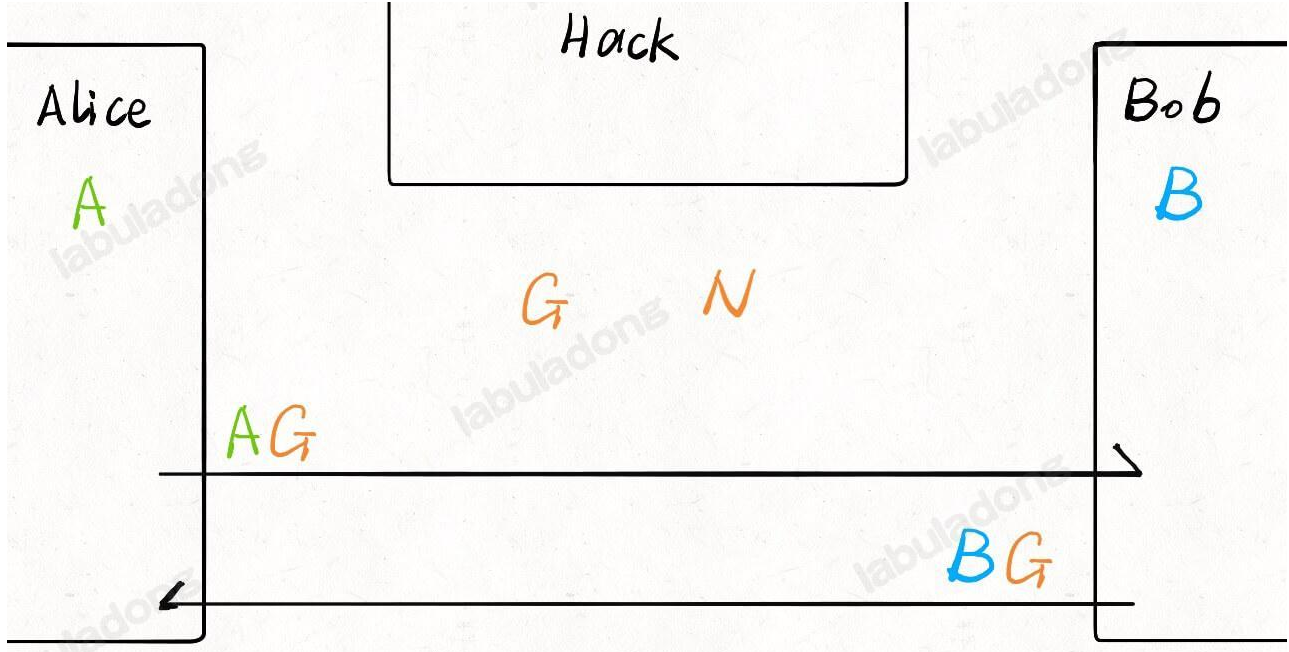 Hack
Alice
Bob
A
B
G N
AG
BG
labuladong
labuladong
labuladong
labuladong
labuladong